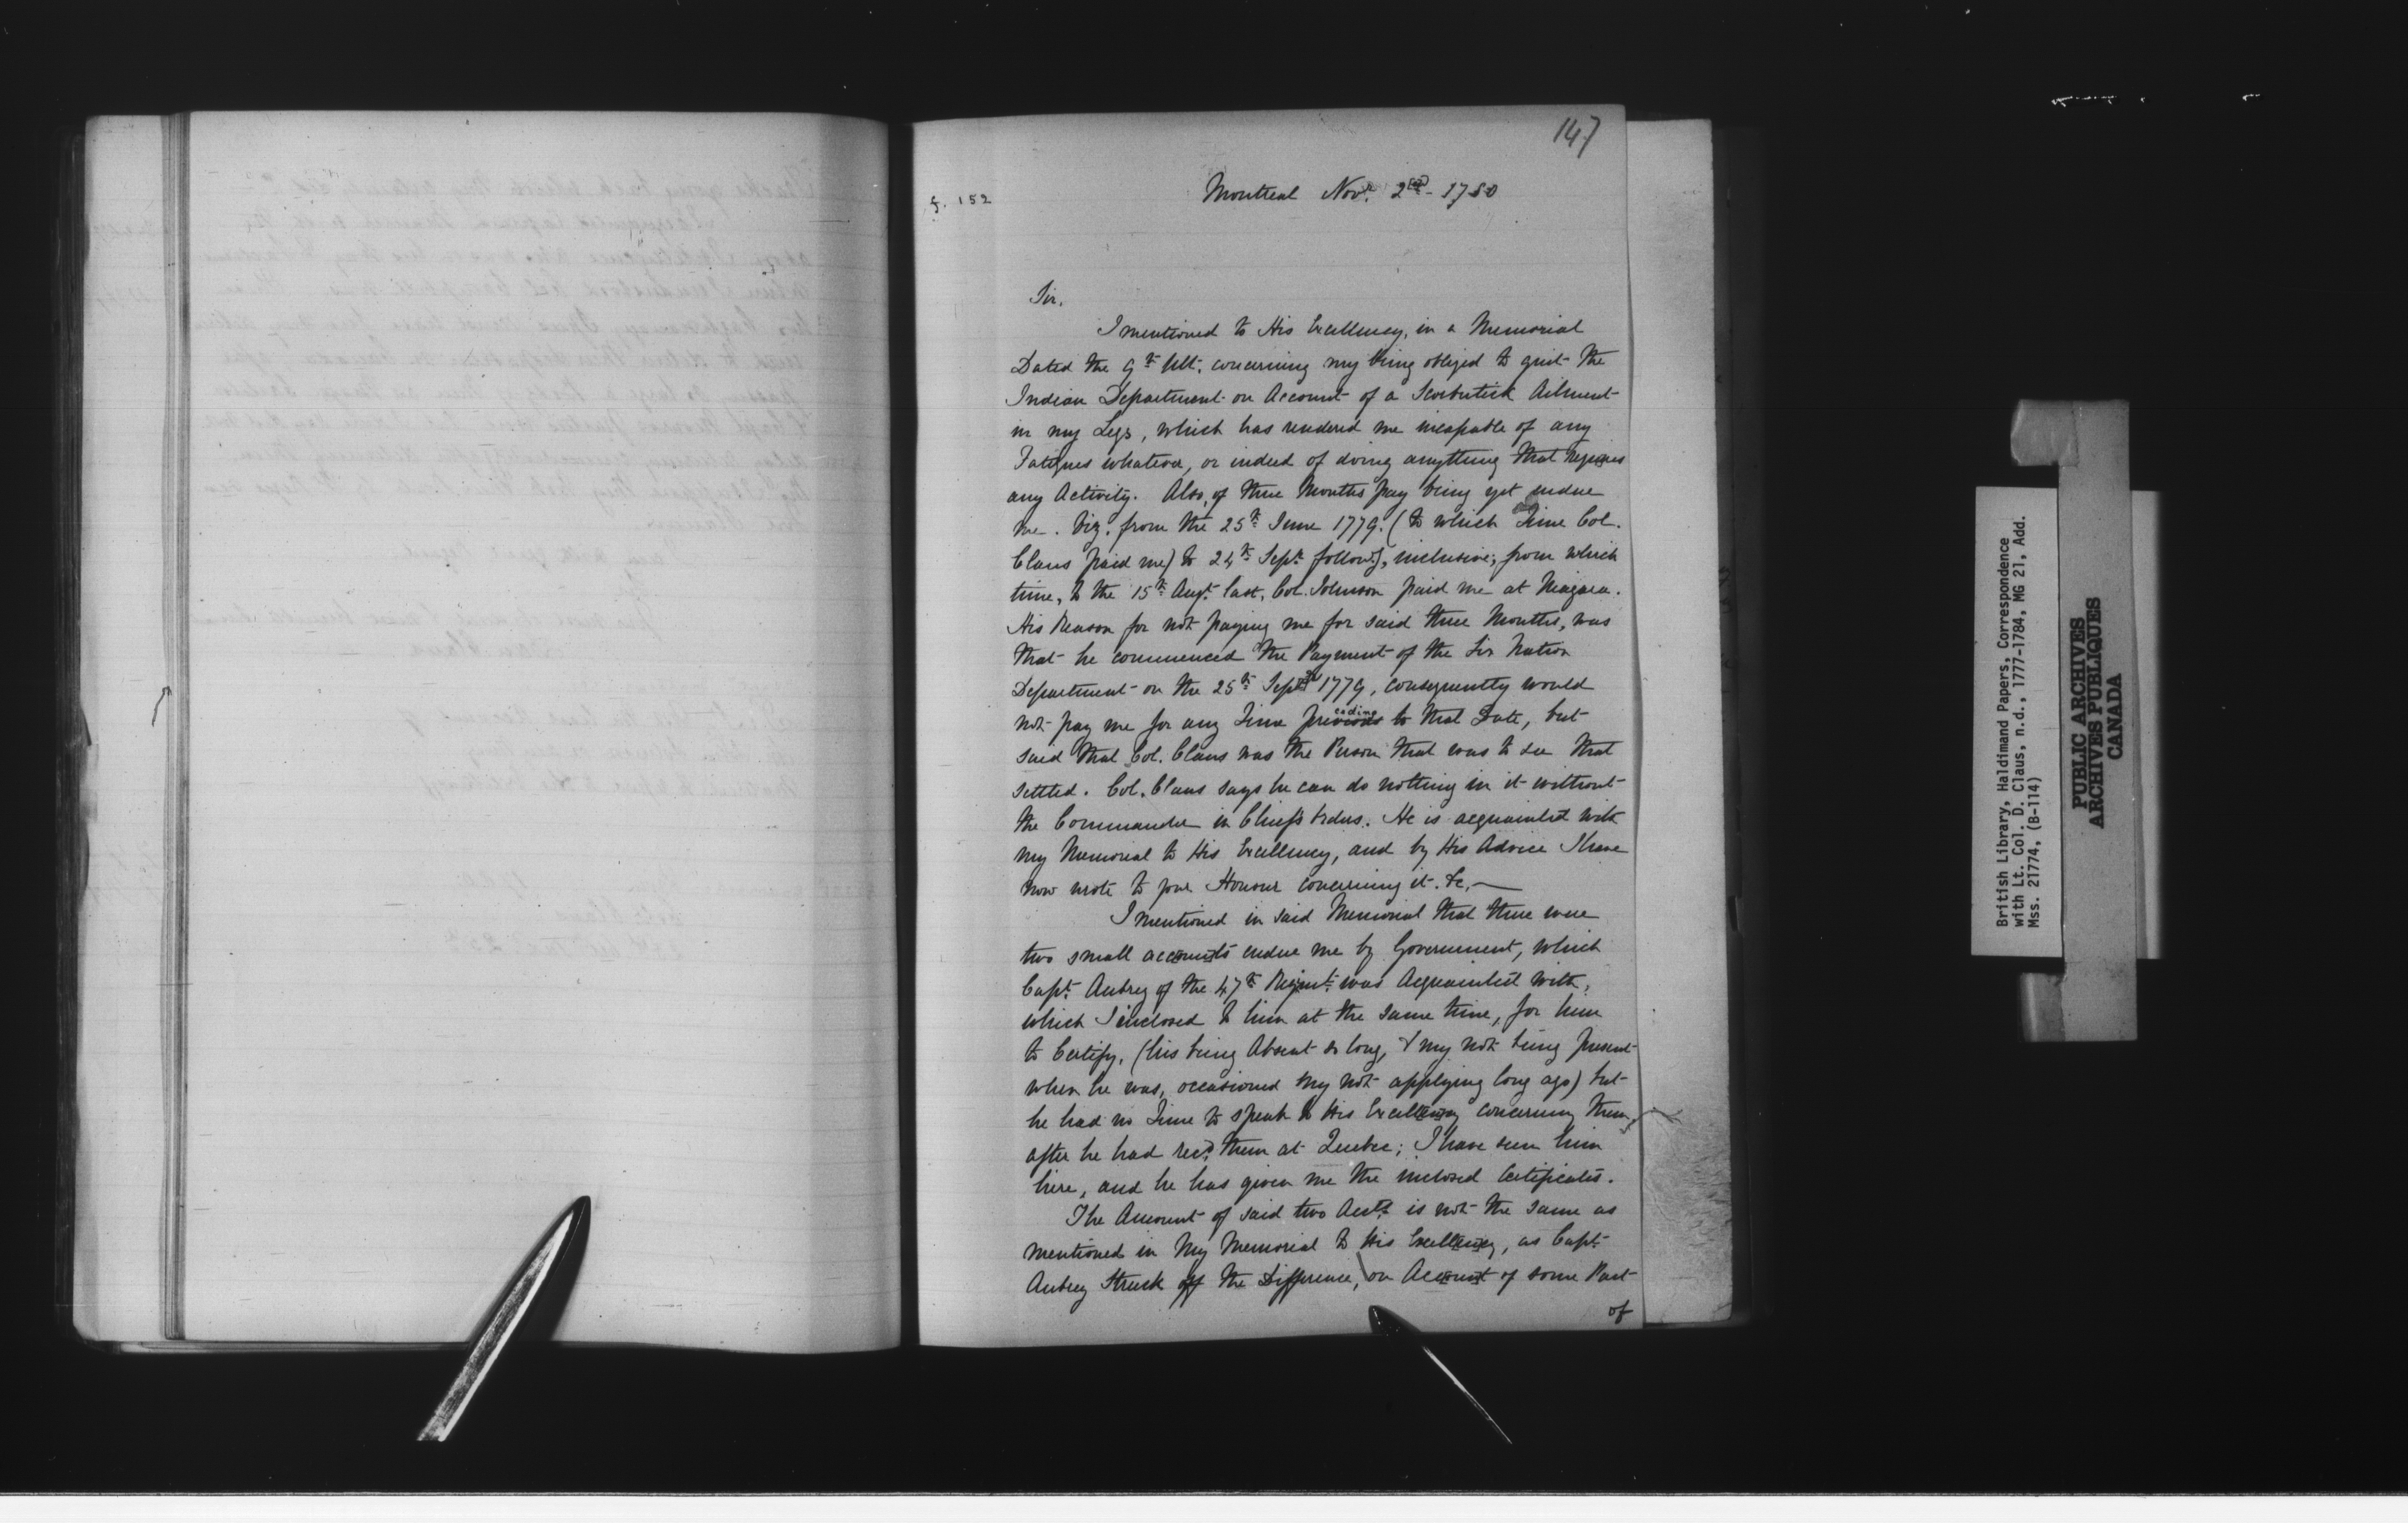 147
f. 152
Montreal Novr. 2nd - 1780
Sir,
I mentioned to His Excellency, in a Memorial
Dated the 9th Ult. concerning my being obliged to quit the
Indian Department on Account of a Scorbutick Ailment
in my Legs, which has rendered me incapable of any
Fatigues whatever, or indeed of doing anything that requires
any Activity. Also, of three Months pay being yet endue
me. Viz. from the 25th June 1779. (to which Time Col.
Claus paid me) to 24th Sept. followg, inclusive; from which
time, to the 15th Augt. last, Col. Johnson paid me at Niagara.
His Reason for not paying me for said three Months, was
that he commenced the Payment of the Six Nation
Department on the 25th Sept. 1779, consequently would
not pay me for any Time preceeding to that Date, but
said that Col. Claus was the Person that was to see that
settled. Col. Claus says he can do nothing in it without
the Commander in Chief's Orders. He is acquainted with
my Memorial to His Excellency, and by His Advice I have
now wrote to your Honour concerning it. &c.
I mentioned in said Memorial that there were
two small accounts endue me by Government, which
Capt. Aubrey of the 47th Regimt. was Acquainted with,
which I inclosed to him at the same time, for him
to Certify. (his being Absent so long, & my not being present
when he was, occasioned my not applying long ago) but
he had no Time to speak to His Excellency concerning them,
after he had recd. them at Quebec; I have seen him
here, and he has given me the inclosed Certificates.
The Amount of said two Accts. is not the same as
mentioned in My Memorial to His Excellency, as Capt.
Aubrey Struck off the Difference, on Account of some Part
of
British Library, Haldimand Papers, Correspondence
with Lt. Col. D. Claus, n.d., 1777-1784, MG 21, Add.
Mss. 21774, (B-114)
PUBLIC ARCHIVES
ARCHIVES PUBLIQUES
CANADA